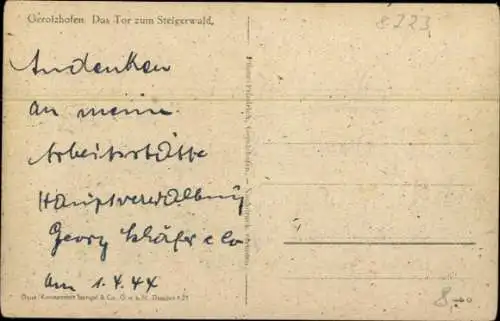 Gerolzhofen. Das Tor zum Steigerwald.
8223
Andenken
an meine
Arbeitsstätte
Hauptverwaltung
Georg Schäfer & Co
am 1.4.44
Stengel & Co., G.m.b.H., Dresden
8.-